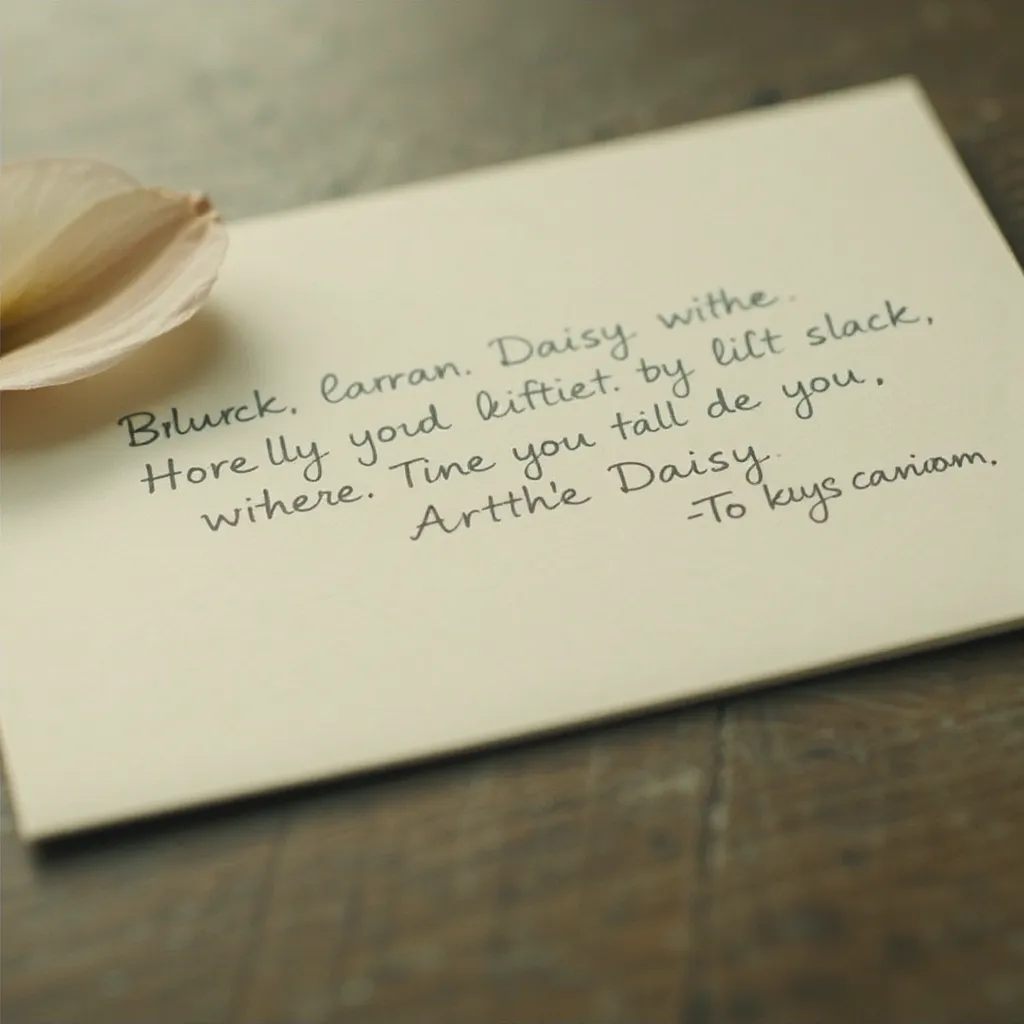 Brlurck, larran. Daisy withe.
Hore lly yourd kiftiet. by lift slack,
wihere. Tine you tall de you,
Artth'e Daisy.
-To kuys canioom.